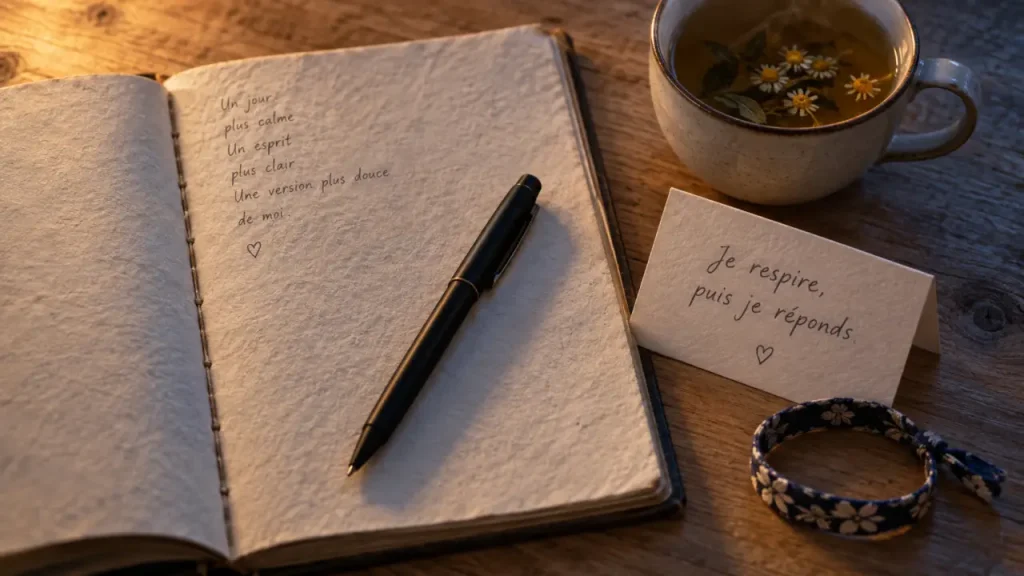 Un jour
plus calme
Un esprit
plus clair
Une version plus douce
de moi
♡
Je respire,
puis je réponds.
♡